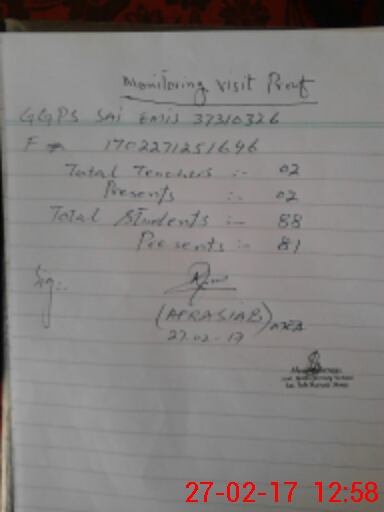 Monitoring Visit Proof
GGPS SAI EMIS 37310326
F 1702271251696
Total Teachers :- 02
Presents :- 02
Total Students :- 88
Presents :- 81
Sig:.
(AFRASIAB)
27-02-17
27-02-17 12:58